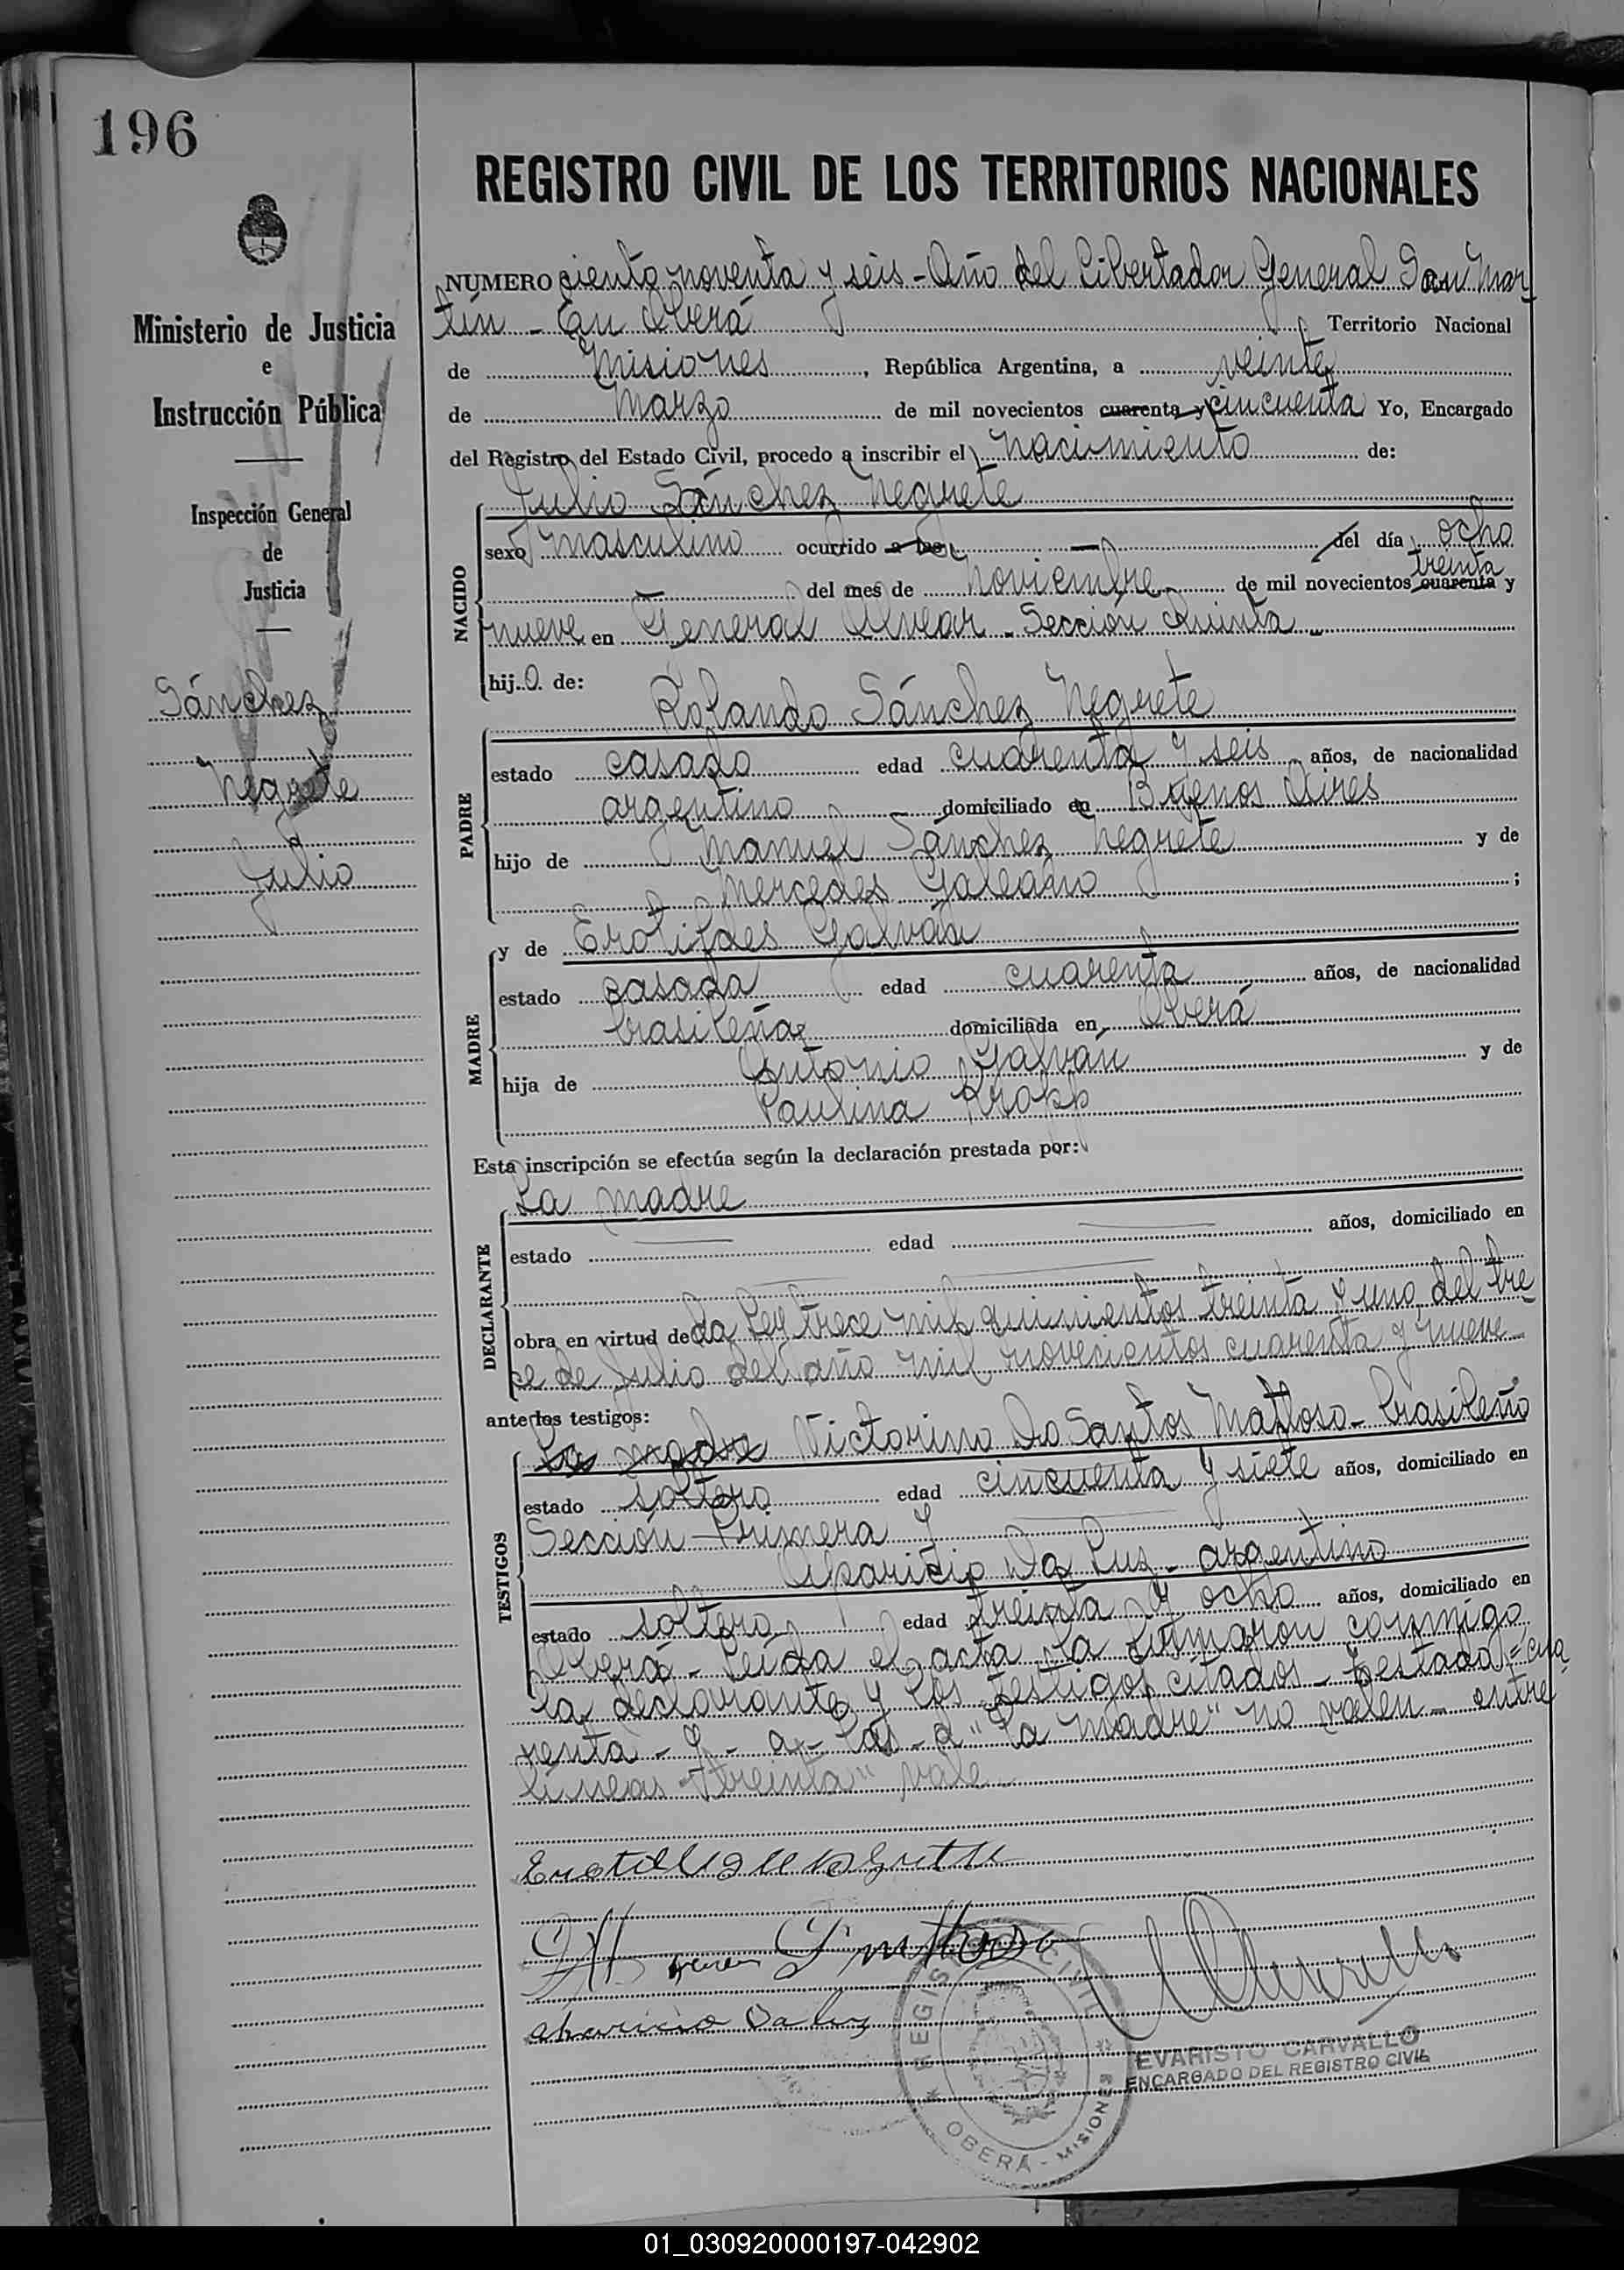 196
REGISTRO CIVIL DE LOS TERRITORIOS NACIONALES
Ministerio de Justicia
e
Instrucción Pública
Inspección General
de
Justicia
Sánchez
Negrete
Julio
NUMERO ciento noventa y seis - Año del Libertador General San Mar
tín - En Oberá Territorio Nacional
de Misiones, República Argentina, a veinte
de Marzo de mil novecientos cuarenta y cincuenta Yo, Encargado
del Registro del Estado Civil, procedo a inscribir el nacimiento de:
Julio Sánchez Negrete
NACIDO
sexo masculino ocurrido a las — del día ocho
treinta
— del mes de noviembre de mil novecientos cuarenta y
nueve en General Alvear - Sección Quinta -
hijo de:
Rolando Sánchez Negrete
PADRE
estado casado edad cuarenta y seis años, de nacionalidad
argentino domiciliado en Buenos Aires
hijo de Manuel Sánchez Negrete y de
Mercedes Galeano ;
y de Erotildes Galván
MADRE
estado casada edad cuarenta años, de nacionalidad
brasileña domiciliada en Oberá
hija de Antonio Galván y de
Paulina Kropp
Esta inscripción se efectúa según la declaración prestada por:
La madre
DECLARANTE
estado — edad — años, domiciliado en
obra en virtud de La Ley trece mil quinientos treinta y uno del tre
ce de Julio del año mil novecientos cuarenta y nueve
ante los testigos:
La madre Victorino Do Santos Mattoso - brasileño
TESTIGOS
estado soltero edad cincuenta y siete años, domiciliado en
Sección Primera y
Aparicio Da Luz - argentino
estado soltero edad treinta y ocho años, domiciliado en
Oberá - Leída el acta la firmaron conmigo
la declarante y los testigos citados - Testado = cua
renta - y - a - las - a "La madre" no valen - entre
líneas "treinta" vale
aparicio Da luz
REGISTRO CIVIL
OBERÁ - MISIONES
EVARISTO CARVALLO
ENCARGADO DEL REGISTRO CIVIL
01_030920000197-042902